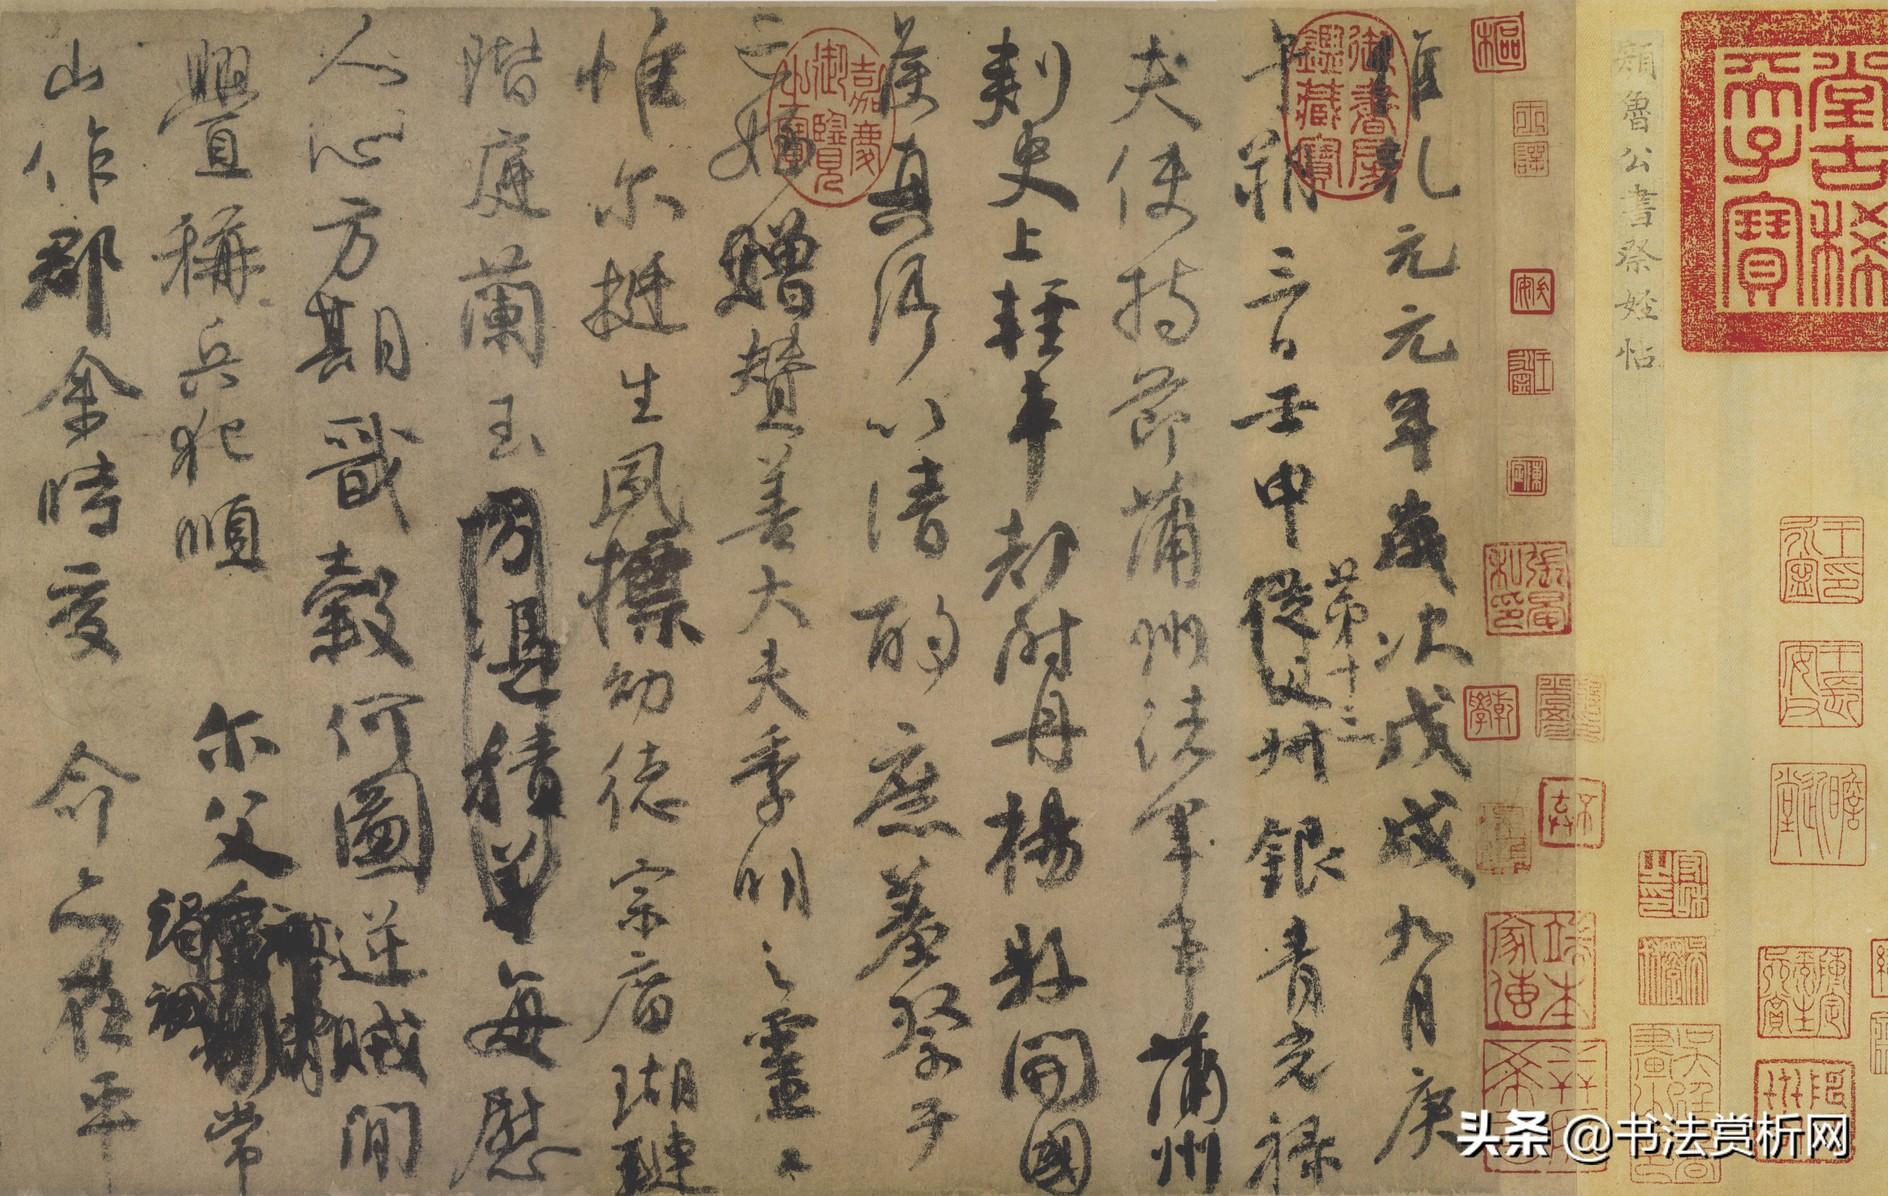 堂古稀
天子寶
顏魯公書祭姪帖
御書房
鑑藏寶
嘉慶
御覽
之寶
維乾元元年歲次戊戌九月庚
午朔三日壬申第十三從父叔銀青光祿
夫使持節蒲州諸軍事蒲州
刺史上輕車都尉丹楊縣開國
侯真卿以清酌庶羞祭于
亡姪贈贊善大夫季明之靈曰
惟尔挺生夙標幼德宗廟瑚璉
階庭蘭玉方憑積善每慰
人心方期戩穀何圖逆賊閒
釁稱兵犯順尔父竭誠常
山作郡余時受命亦在平
头条 @书法赏析网